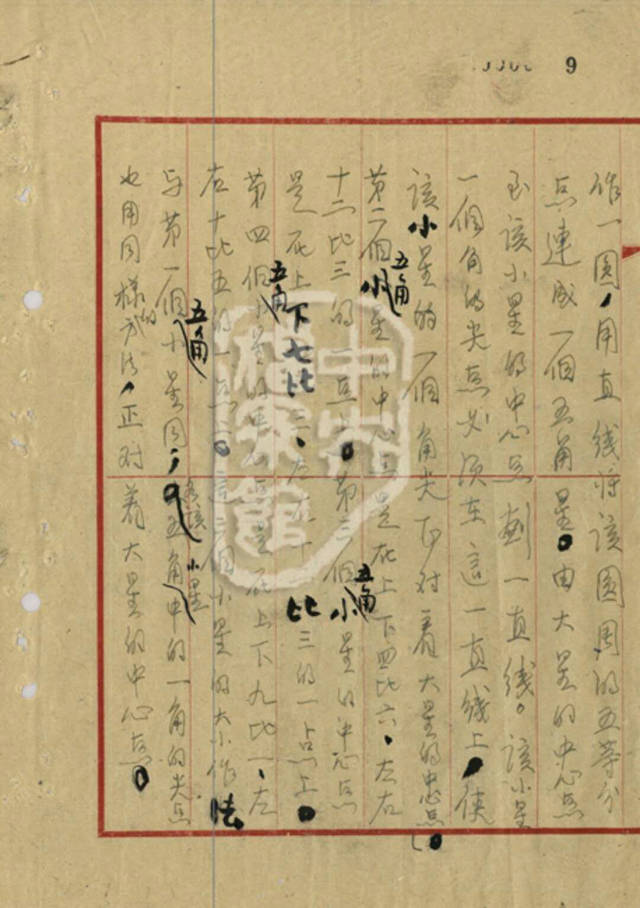 9
作一圆，用直线将该圆周的五等分
点连成一个五角星。由大星的中心点
到该小星的中心点划一直线。该小星
一个角的尖点必须在这一直线上，使
该小星的一个角尖正对着大星的中心点。
第二个小五角星的中心点是在上下四比六、左右
十二比三的一点上。第三个小五角星的中心点
是在上下七比三、左右十比三的一点上。
第四个小五角星的中心点是在上下九比一、左
右十比五的一点上。这三个小星的大小作法
与第一个小五角星同，各该小星五角中的一角的尖点
也用同样的方法，正对着大星的中心点。
中央档案馆